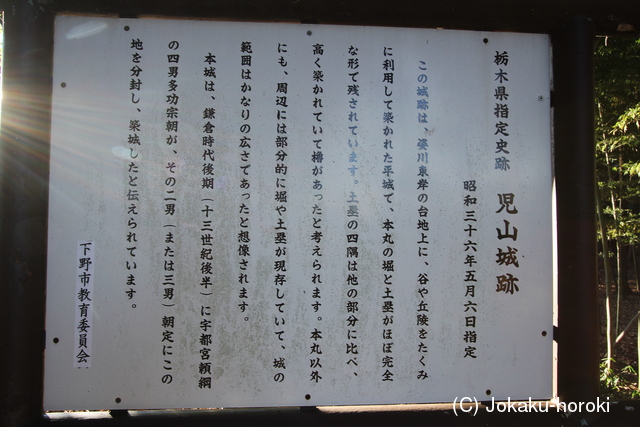 栃木県指定史跡　児山城跡
昭和三十六年五月六日指定
この城跡は、姿川東岸の台地上に、谷や丘陵をたくみ
に利用して築かれた平城で、本丸の堀と土塁がほぼ完全
な形で残されています。土塁の四隅は他の部分に比べ、
高く築かれていて櫓があったと考えられます。本丸以外
にも、周辺には部分的に堀や土塁が現存していて、城の
範囲はかなりの広さであったと想像されます。
本城は、鎌倉時代後期（十三世紀後半）に宇都宮頼綱
の四男多功宗朝が、その二男（または三男）朝定にこの
地を分封し、築城したと伝えられています。
下野市教育委員会
(C) Jokaku-horoki